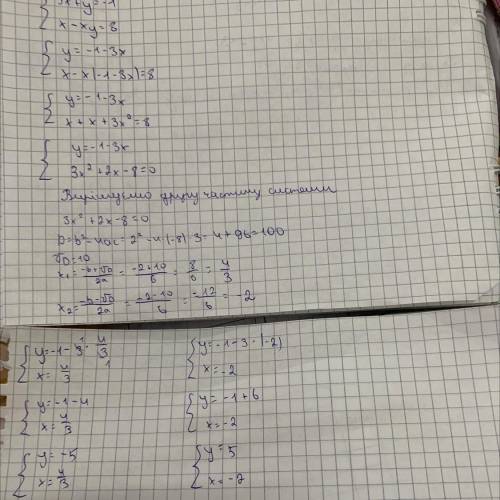 3x+y=-1
x-xy=8
y=-1-3x
x-x(-1-3x)=8
y=-1-3x
x+x+3x²=8
y=-1-3x
3x²+2x-8=0
Вирішуємо другу частину системи
3x²+2x-8=0
D=b²-4ac=2²-4·(-8)·3=4+96=100
√D=10
x₁=(-b+√D)/2a=(-2+10)/6=8/6=4/3
x₂=(-b-√D)/2a=(-2-10)/6=-12/6=-2
y=-1-3·4/3
x=4/3
y=-1-4
x=4/3
y=-5
x=4/3
y=-1-3·(-2)
x=-2
y=-1+6
x=-2
y=5
x=-2